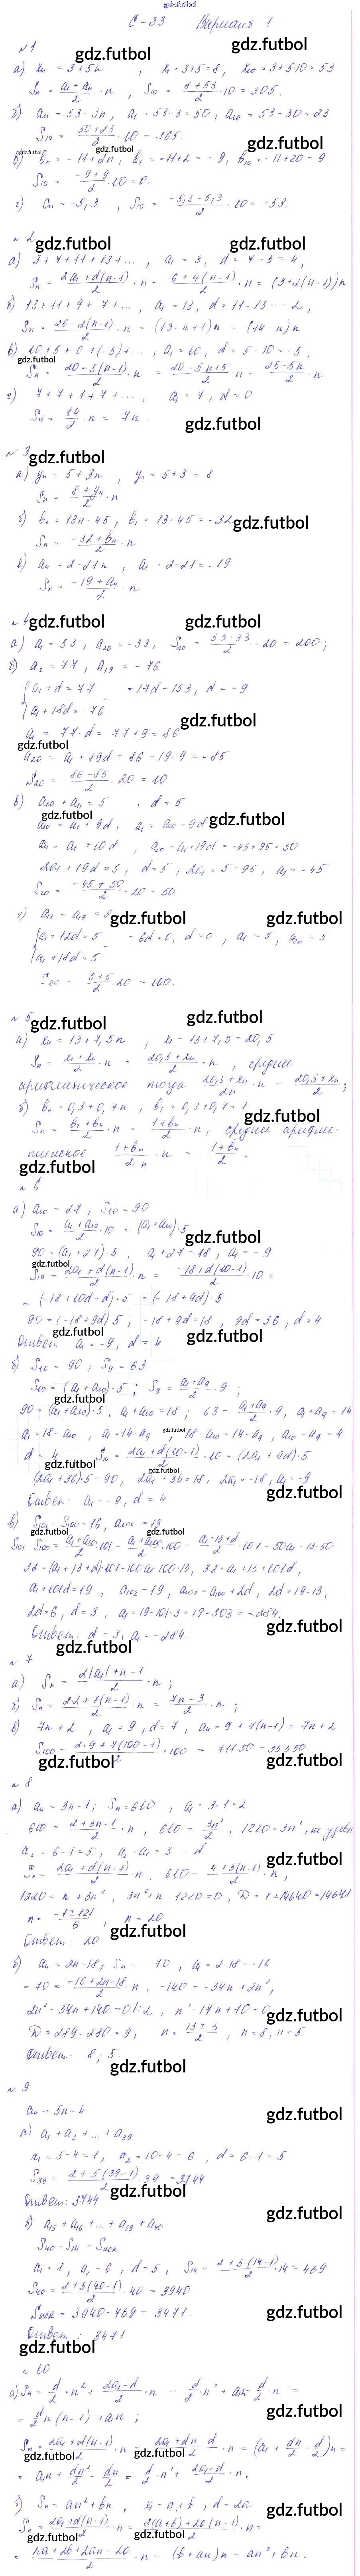 gdz.futbol
С-33 Вариант 1
№1
а) xn = 3+5n, x1 = 3+5 = 8, x10 = 3+5·10 = 53
Sn = (a1+an)/2 · n, S10 = (8+53)/2 · 10 = 305.
б) an = 53-3n, a1 = 53-3 = 50, a10 = 53-30 = 23
S10 = (50+23)/2 · 10 = 365.
в) bn = -11+2n, b1 = -11+2 = -9, b10 = -11+20 = 9
S10 = (-9+9)/2 · 10 = 0.
г) an = -5,3, S10 = (-5,3-5,3)/2 · 10 = -53.
№2
а) 3+7+11+13+..., a1 = 3, d = 7-3 = 4,
Sn = (2a1+d(n-1))/2 · n = (6+4(n-1))/2 · n = (3+2(n-1))n
б) 13+11+9+7+..., a1 = 13, d = 11-13 = -2,
Sn = (26-2(n-1))/2 · n = (13-n+1)n = (14-n)n
в) 10+5+0+(-5)+..., a1 = 10, d = 5-10 = -5
Sn = (20-5(n-1))/2 · n = (20-5n+5)/2 n = (25-5n)/2 · n
г) 7+7+7+7+..., a1 = 7, d = 0
Sn = 14/2 · n = 7n.
№3
а) yn = 5+3n, y1 = 5+3 = 8
Sn = (8+yn)/2 · n
б) bn = 13n-45, b1 = 13-45 = -32
Sn = (-32+bn)/2 · n
в) an = 2-21n, a1 = 2-21 = -19
Sn = (-19+an)/2 · n
№4
а) a1 = 53, a20 = -33, S20 = (53-33)/2 · 20 = 200;
б) a2 = 77, a19 = -76
{a1+d = 77 -17d = 153, d = -9
a1+18d = -76
a1 = 77-d = 77+9 = 86
a20 = a1+19d = 86-19·9 = -85
S20 = (86-85)/2 · 20 = 10
в) a10+a11 = 5, d = 5
a10 = a1+9d, a1 = a10-9d
a11 = a1+10d, a20 = a1+19d = -45+95 = 50
2a1+19d = 5, d = 5, 2a1 = 5-95, a1 = -45
S20 = (-45+50)/2 · 20 = 50
{a1+12d = 5 -6d = 0, d = 0, a1 = 5, a20 = 5
a1+18d = 5
S20 = (5+5)/2 · 20 = 100.
№5
а) xn = 13+7,5n, x1 = 13+7,5 = 20,5
Sn = (x1+xn)/2 · n = (20,5+xn)/2 · n, среднее
арифметическое тогда (20,5+xn)/2n · n = (20,5+xn)/2;
б) bn = 0,3+0,7n, b1 = 0,3+0,7 = 1
Sn = (b1+bn)/2 · n = (1+bn)/2 · n, среднее арифме-
тическое (1+bn)/(2·n) · n = (1+bn)/2.
№6
а) a10 = 27, S10 = 90
S10 = (a1+a10)/2 · 10 = (a1+a10)·5
90 = (a1+27)·5, a1+27 = 18, a1 = -9
S10 = (2a1+d(n-1))/2 · n = (-18+d(10-1))/2 · 10 =
= (-18+10d-d)·5 = (-18+9d)·5
90 = (-18+9d)·5, -18+9d = 18, 9d = 36, d = 4
Ответ: a1 = -9, d = 4
б) S10 = 90, S9 = 63
S10 = (a1+a10)·5; S9 = (a1+a9)/2 · 9;
90 = (a1+a10)·5, a1+a10 = 18; 63 = (a1+a9)/2 · 9, a1+a9 = 14
a1 = 18-a10, a1 = 14-a9, 18-a10 = 14-a9, a10-a9 = 4
d = 4 S10 = (2a1+d(10-1))/2 · 10 = (2a1+9d)·5
(2a1+36)·5 = 90, 2a1+36 = 18, 2a1 = -18, a1 = -9
Ответ: a1 = -9, d = 4
в) S101-S100 = 16, a100 = 13
32 = (a1+13+d)·101-100a1-100·13, 32 = a1+13+101d,
a1+101d = 19, a102 = 19, a102 = a100+2d, 2d = 19-13,
2d = 6, d = 3, a1 = 19-101·3 = 19-303 = -284.
Ответ: d = 3, a1 = -284.
№7
а) Sn = (2|a1|+n-1)/2 · n;
б) Sn = (22+7(n-1))/2 · n = (7n-3)/2 · n;
в) 7n+2, a1 = 9, d = 7, an = 9+7(n-1) = 7n+2
S100 = (2·9+7(100-1))/2 · 100 = 711·50 = 35550
№8
а) an = 3n-1; Sn = 610, a1 = 3-1 = 2
610 = (2+3n-1)/2 · n, 610 = 3n²/2, 1220 = 3n², не удовл
a2 = 6-1 = 5, a2-a1 = 3 = d
Sn = (2a1+d(n-1))/2 · n, 610 = (4+3(n-1))/2 · n,
1220 = n+3n², 3n²+n-1220 = 0, D = 1+14640 = 14641
n = (-1±121)/6, n = 20
Ответ: 20
б) an = 2n-18, Sn = -70, a1 = 2-18 = -16
-70 = (-16+2n-18)/2 n, -140 = -34n+2n²,
2n²-34n+140 = 0 |:2, n²-17n+70 = 0
D = 289-280 = 9, n = (13±3)/2, n = 8, n = 5
Ответ: 8; 5.
№9
an = 5n-4
а) a1+a2+...+a39
a1 = 5-4 = 1, a2 = 10-4 = 6, d = 6-1 = 5
S39 = (2+5(39-1))/2 · 39 = 3744
Ответ: 3744
б) a15+a16+...+a39+a40
S40-S14 = Sиск
a1 = 1, a2 = 6, d = 5, S14 = (2+5(14-1))/2 · 14 = 469
S40 = (2+5(40-1))/2 · 40 = 3940
Sиск = 3940-469 = 3471.
Ответ: 3471
№10
а) Sn = d/2 · n² + (2a1-d)/2 · n = d/2 · n² + a1n - d/2 · n =
= d/2 n(n-1) + a1n;
Sn = (2a1+d(n-1))/2 · n = (2a1+dn-d)/2 · n = (a1+dn/2-d/2)n =
= a1n + dn²/2 - dn/2 = d/2 · n² + (2a1-d)/2 · n.
б) Sn = an²+bn, x1 = a+b, d = 2a
Sn = (2a1+d(n-1))/2 · n = (2(a+b)+2a(n-1))/2 · n =
= (2a+2b+2an-2a)/2 · n = (b+an)n = an²+bn.